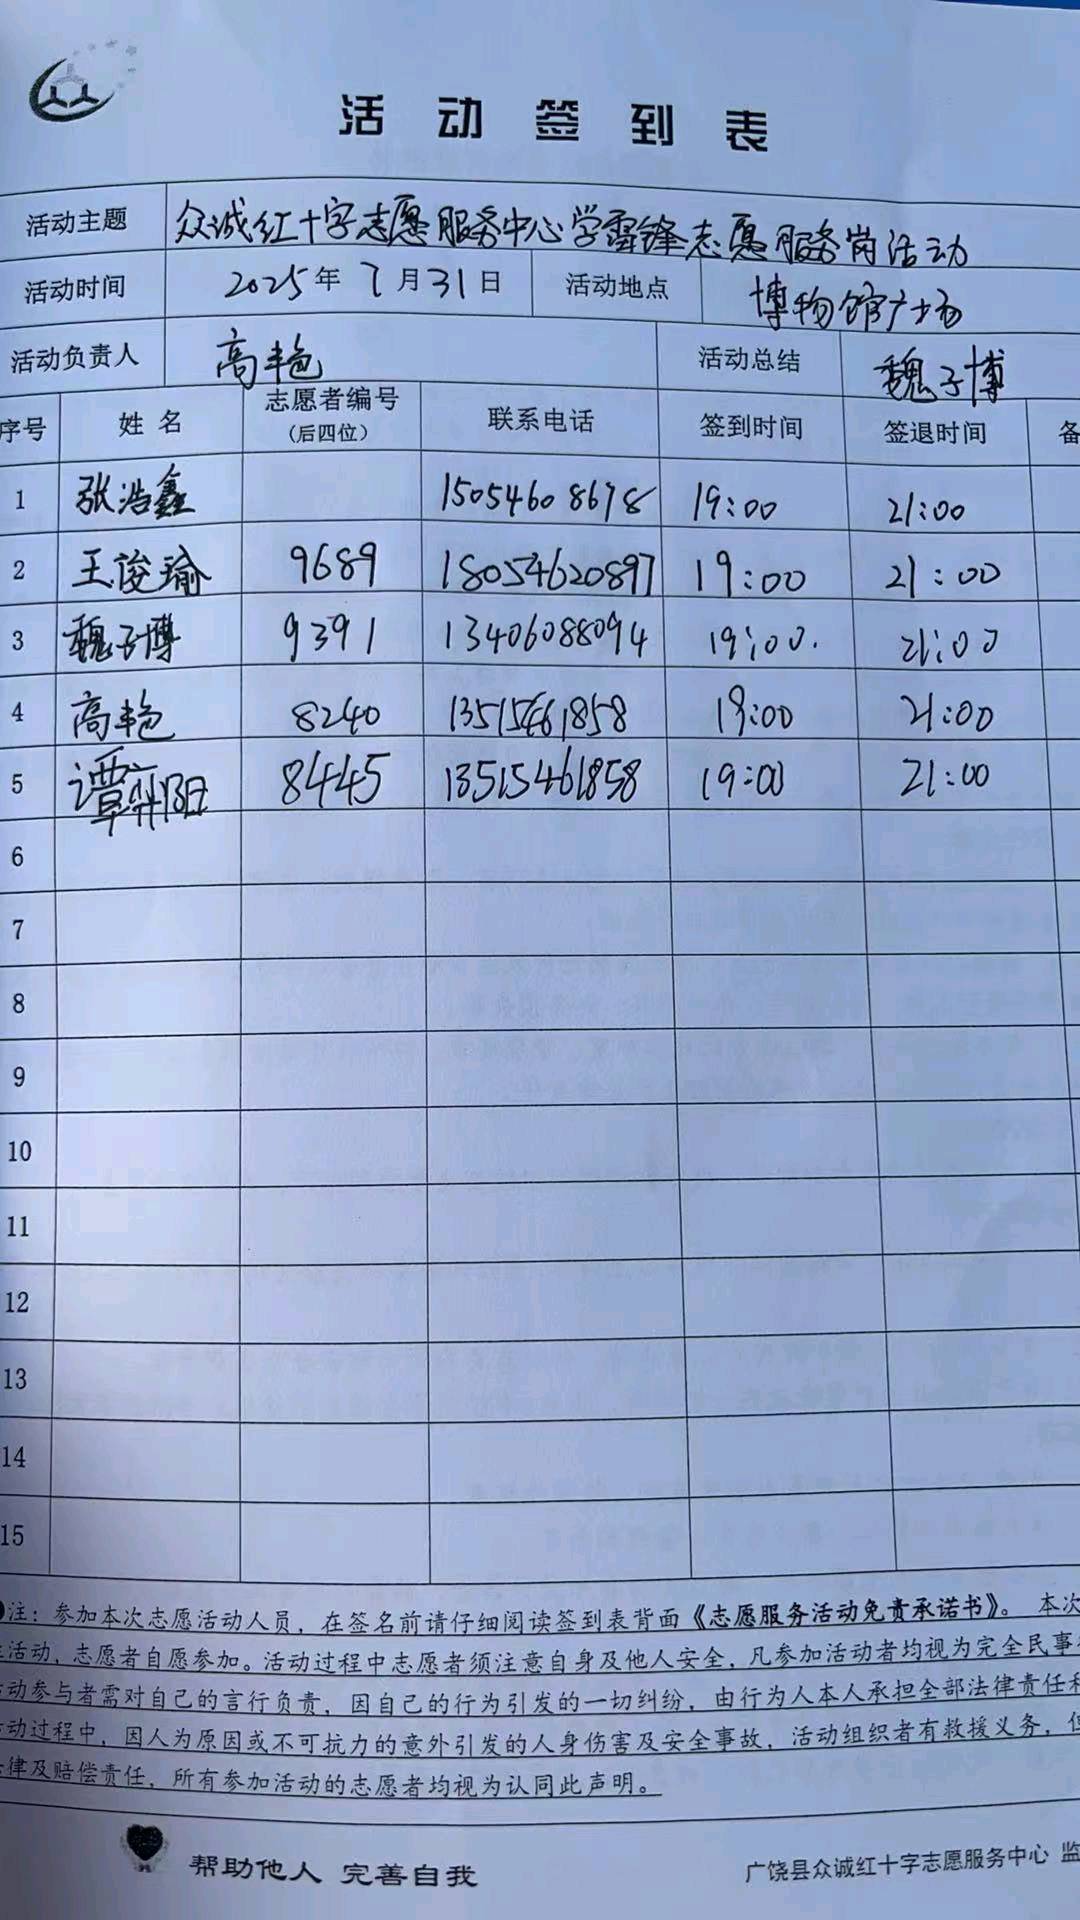 活动签到表
活动主题 众诚红十字志愿服务中心学雷锋志愿服务岗活动
活动时间 2025年7月31日 活动地点 博物馆广场
活动负责人 高艳 活动总结 魏子博
序号 姓名 志愿者编号（后四位） 联系电话 签到时间 签退时间 备
1 张浩鑫 15054608678 19:00 21:00
2 王俊瑜 9689 18054620897 19:00 21:00
3 魏子博 9391 13406088094 19:00. 21:00
4 高艳 8240 13515461858 19:00 21:00
5 谭弈阳 8445 13515461858 19:00 21:00
6
7
8
9
10
11
12
13
14
15
注：参加本次志愿活动人员，在签名前请仔细阅读签到表背面《志愿服务活动免责承诺书》。本次
活动，志愿者自愿参加。活动过程中志愿者须注意自身及他人安全，凡参加活动者均视为完全民事
动参与者需对自己的言行负责，因自己的行为引发的一切纠纷，由行为人本人承担全部法律责任和
动过程中，因人为原因或不可抗力的意外引发的人身伤害及安全事故，活动组织者有救援义务，但
律及赔偿责任，所有参加活动的志愿者均视为认同此声明。
帮助他人 完善自我
广饶县众诚红十字志愿服务中心 监